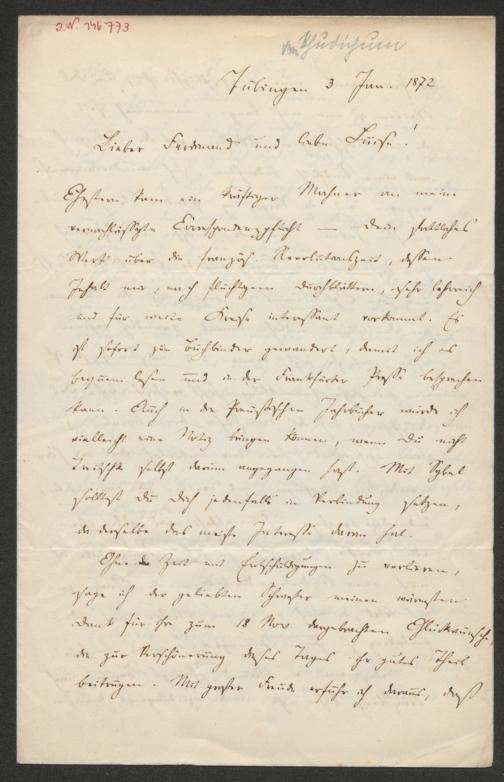 J.N. 146.773
von Thudichum
Tübingen 3 Jan. 1872
Lieber Ferdinand und liebe Luise!
Gestern kam ein kräftiger Mahner an meine
vernachlässigte Correspondenzpflicht — Dein stattliches
Werk über die französ. Revolutionszeit, dessen
Inhalt mir, nach flüchtigem Durchblättern, sehr lehrreich
und für weite Kreise interessant vorkommt. Es
ist sofort zum Buchbinder gewandert, damit ich es
bequem lesen und in der Frankfurter Presse besprechen
kann. Auch in die Preußischen Jahrbücher würde ich
vielleicht eine Notiz bringen können, wenn Du nicht
Treitschke selbst darum angegangen hast. Mit Sybel
solltest Du Dich jedenfalls in Verbindung setzen,
da derselbe das meiste Interesse daran hat.
Ohne Zeit mit Entschuldigungen zu verlieren,
sage ich der geliebten Schwester meinen wärmsten
Dank für ihre zum 18 Nov. dargebrachten Glückwünsche,
die zur Verschönerung dieses Tages ihr gutes Theil
beitrugen. Mit großer Freude erfuhr ich daraus, daß